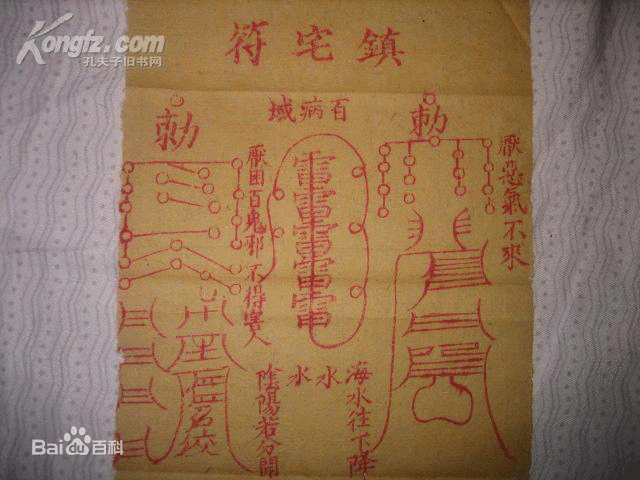 Kongfz.com
孔夫子旧书网
鎮宅符
百病域
勅
厭惡氣不來
勅
厭困百鬼邪不得害人
雷
雷
雷
雷
雷
海水往下降
水水
陰陽若分開
Bai 百科